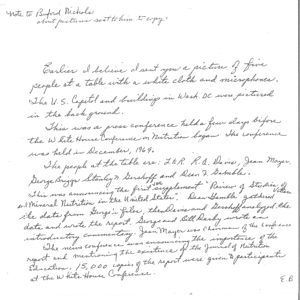 Note to Buford Nichols
about pictures sent to him to copy.
Earlier I believe I sent you a picture of five
people at a table with a white cloth and microphones.
The U.S. Capitol and buildings in Wash. DC was pictured
in the back ground.
This was a press conference held a few days before
the White House Conference on Nutrition began. The conference
was held in December, 1969.
The people at the table are: L to R R.A. Davis, Jean Mayer,
George Briggs, Stanley N. Gershoff and Dean F. Gamble.
This was announcing the first supplement "Review of Studies of Vitamin
and Mineral Nutrition in the United States". Dean Gamble gathered
the dates from George's files, then Davis and Gershoff analyzed the
data and wrote the report. George and Bill Darby wrote an
introductory commentary. Jean Mayer was chairman of the conference
The news conference was announcing the importance of the
report and mentioning the existence of the Journal of Nutrition
Education. 15,000 copies of the report were given to participants
at the White House Conference.
E.B